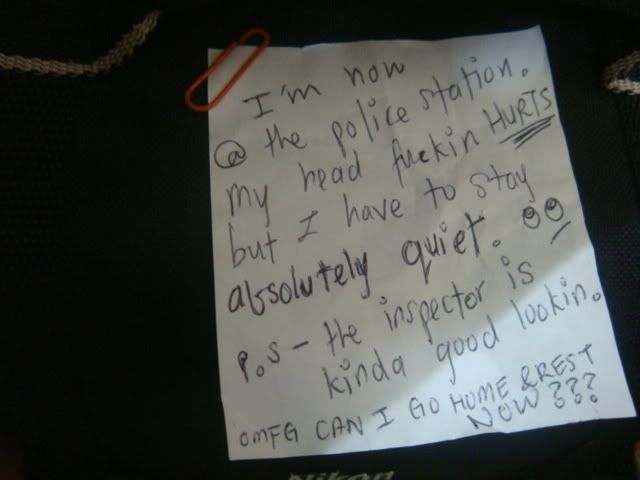 I'm now
@ the police station.
my head fuckin HURTS
but I have to stay
absolutely quiet.
P.S - the inspector is
kinda good lookin.
OMFG CAN I GO HOME & REST
NOW???
Nikon